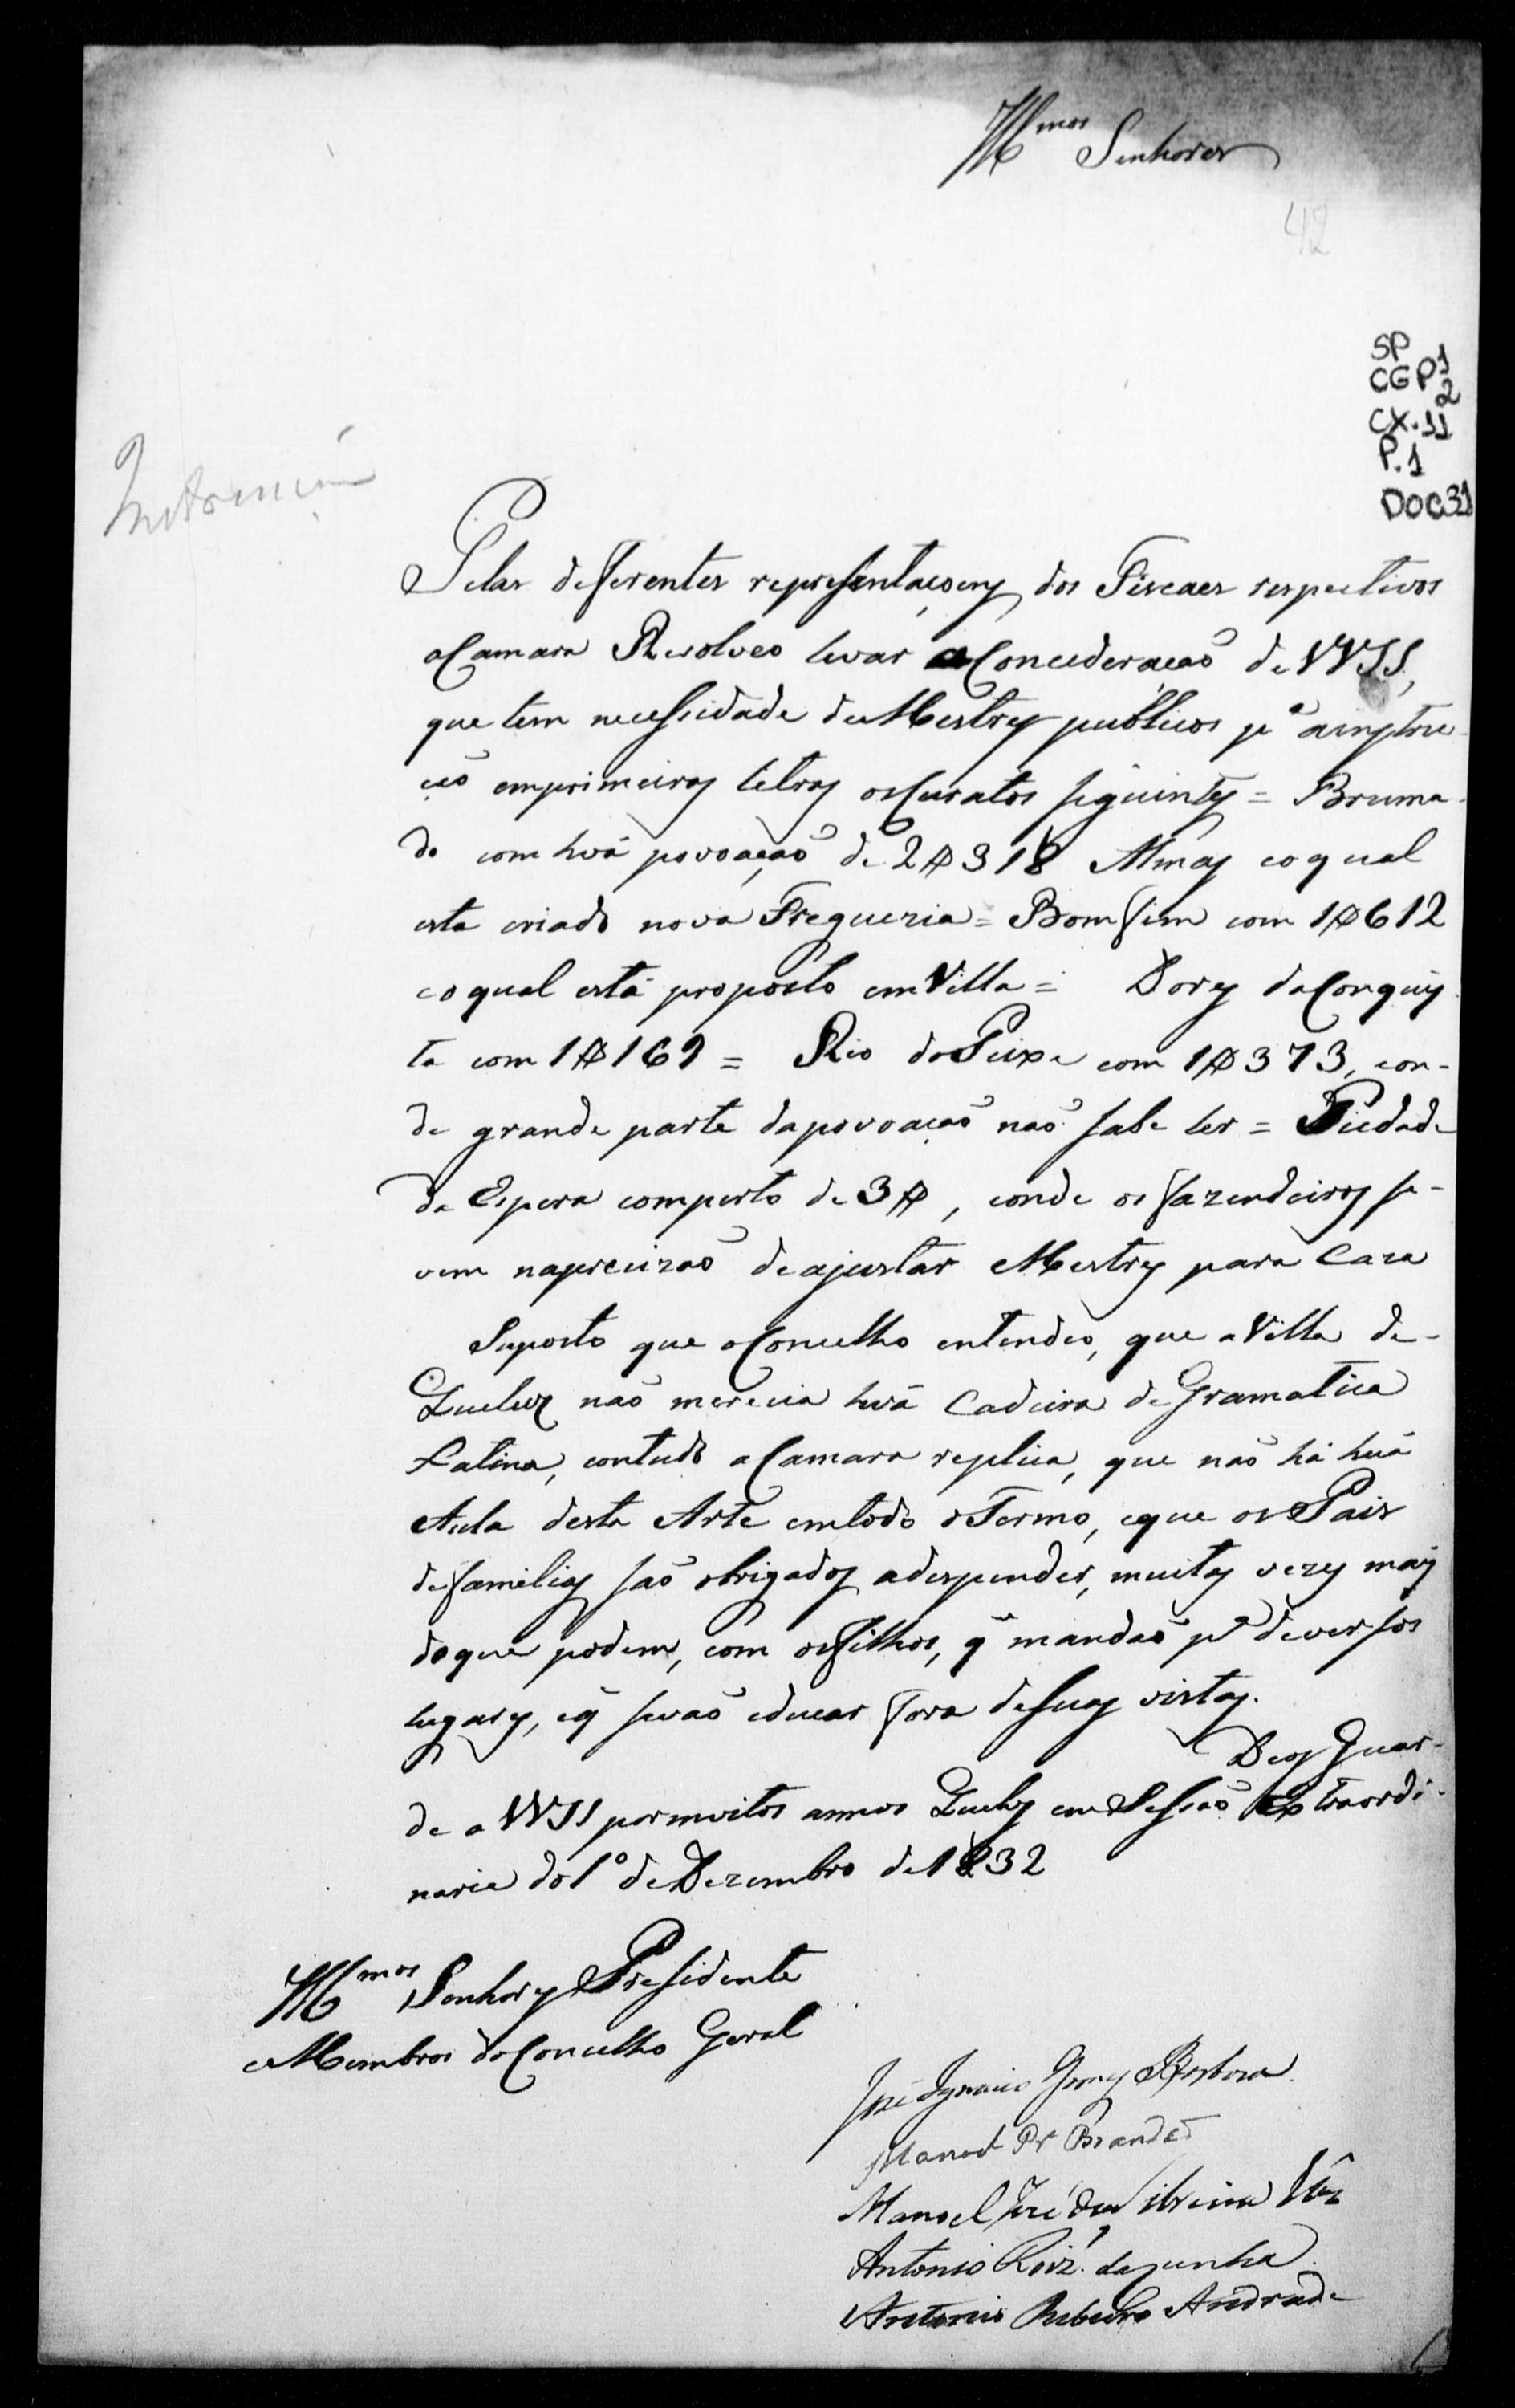 Illmos Senhores
42
SP
CGP1
2
CX.11
P.1
DOC31
Instrucção
Pelas deferentes representaçoens dos Fiscaes respectivos
a Camara Resolveo levar a Concideração de VVSS,
que tem necessidade de Mestres publicos pa a instru
ção em primeiras letras os Curatos seguintes = Bruma-
do com huã povoação de 2$318 Almas e o qual
esta criado nova Freguezia = Bom fim com 1$612
e o qual está proposto em Villa = Dores da Conquis
ta com 1$169 = Rio do Peixe com 1$373, e on-
de grande parte da povoação não sabe ler = Piedade
da Espera com perto de 3$, e onde os fazendeiros se
vem na precizão de ajustar Mestres para Caza
Suposto que o Concelho entendeo, que a Villa de
Queluz não merecia huã Cadeira de Gramatica
Latina, contudo a Camara replica, que não há huã
Aula desta Arte em todo o Termo, e que os Pais
de familias são obrigados a despender, muitas vezes mais
do que podem, com os filhos, q̃ mandão pa deversos
lugares, e q̃ se vão educar fora de suas vistas.
Deos Guar-
de a VVSS por muitos annos Queluz em Sessão Extraordi-
naria do 1º de Dezembro de 1832
Illmos Senhores Presidente
e Membros do Concelho Geral
José Ignacio Gomes Barboza
Manoel Pr Brandão
Manoel José da
Antonio Roiz. da Cunha
Antonio Ribeiro Andrade